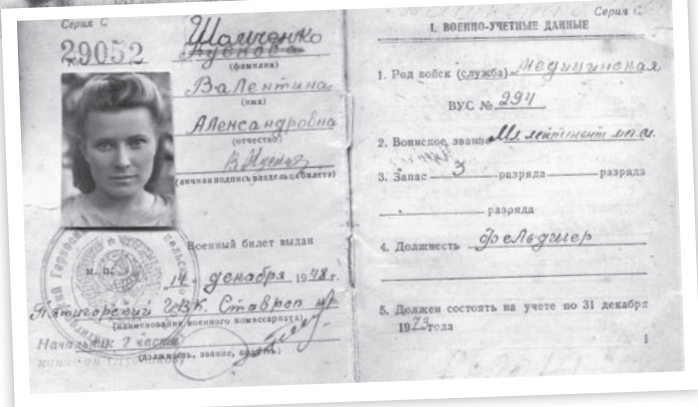 Серия С
29052
Шамченко
Бубнова
(фамилия)
Валентина
(имя)
Александровна
(отчество)
(личная подпись владельца билета)
Военный билет выдан
М. П.
14 декабря 1948 г.
Пятигорский ГВК. Ставроп. кр
(наименование военного комиссариата)
Начальник 2 части
(должность, звание, подпись)
Серия С
I. ВОЕННО-УЧЕТНЫЕ ДАННЫЕ
1. Род войск (служба) медицинская
ВУС № 294
2. Воинское звание Мл лейтенант м/с
3. Запас 3 разряда разряда
разряда
4. Должность фельдшер
5. Должен состоять на учете по 31 декабря
1973 года
1